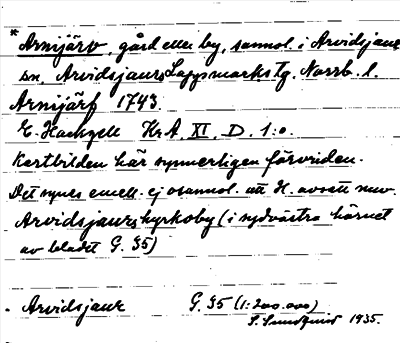 * Arvijärv, gård eller by, sannol. i Arvidsjaur
sn, Arvidsjaurs Lappmarks tg. Norrb. l.
Arvijärf 1743.
E. Hackzell KrA. XI. D. 1:o.
Kartbilden här synnerligen förvriden.
Det synes emell. ej osannol. att H. avsett nuv.
Arvidsjaurs kyrkoby (i sydvästra hörnet
av bladet G. 35)
Arvidsjaur G. 35 (1:200.000)
S. Sundqvist 1935.